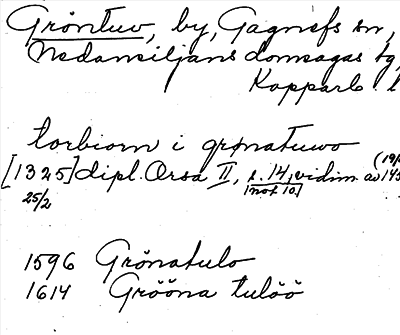 Gröntuv, by, Gagnefs sn,
Nedansiljans domsagas tg,
Kopparb. l
torbiorn i grønatuwo
[1325] dipl. Orsa II, s. 14, vidim. av
25/2 not 10
1596 Grönatulo
1614 Grööna tulöö